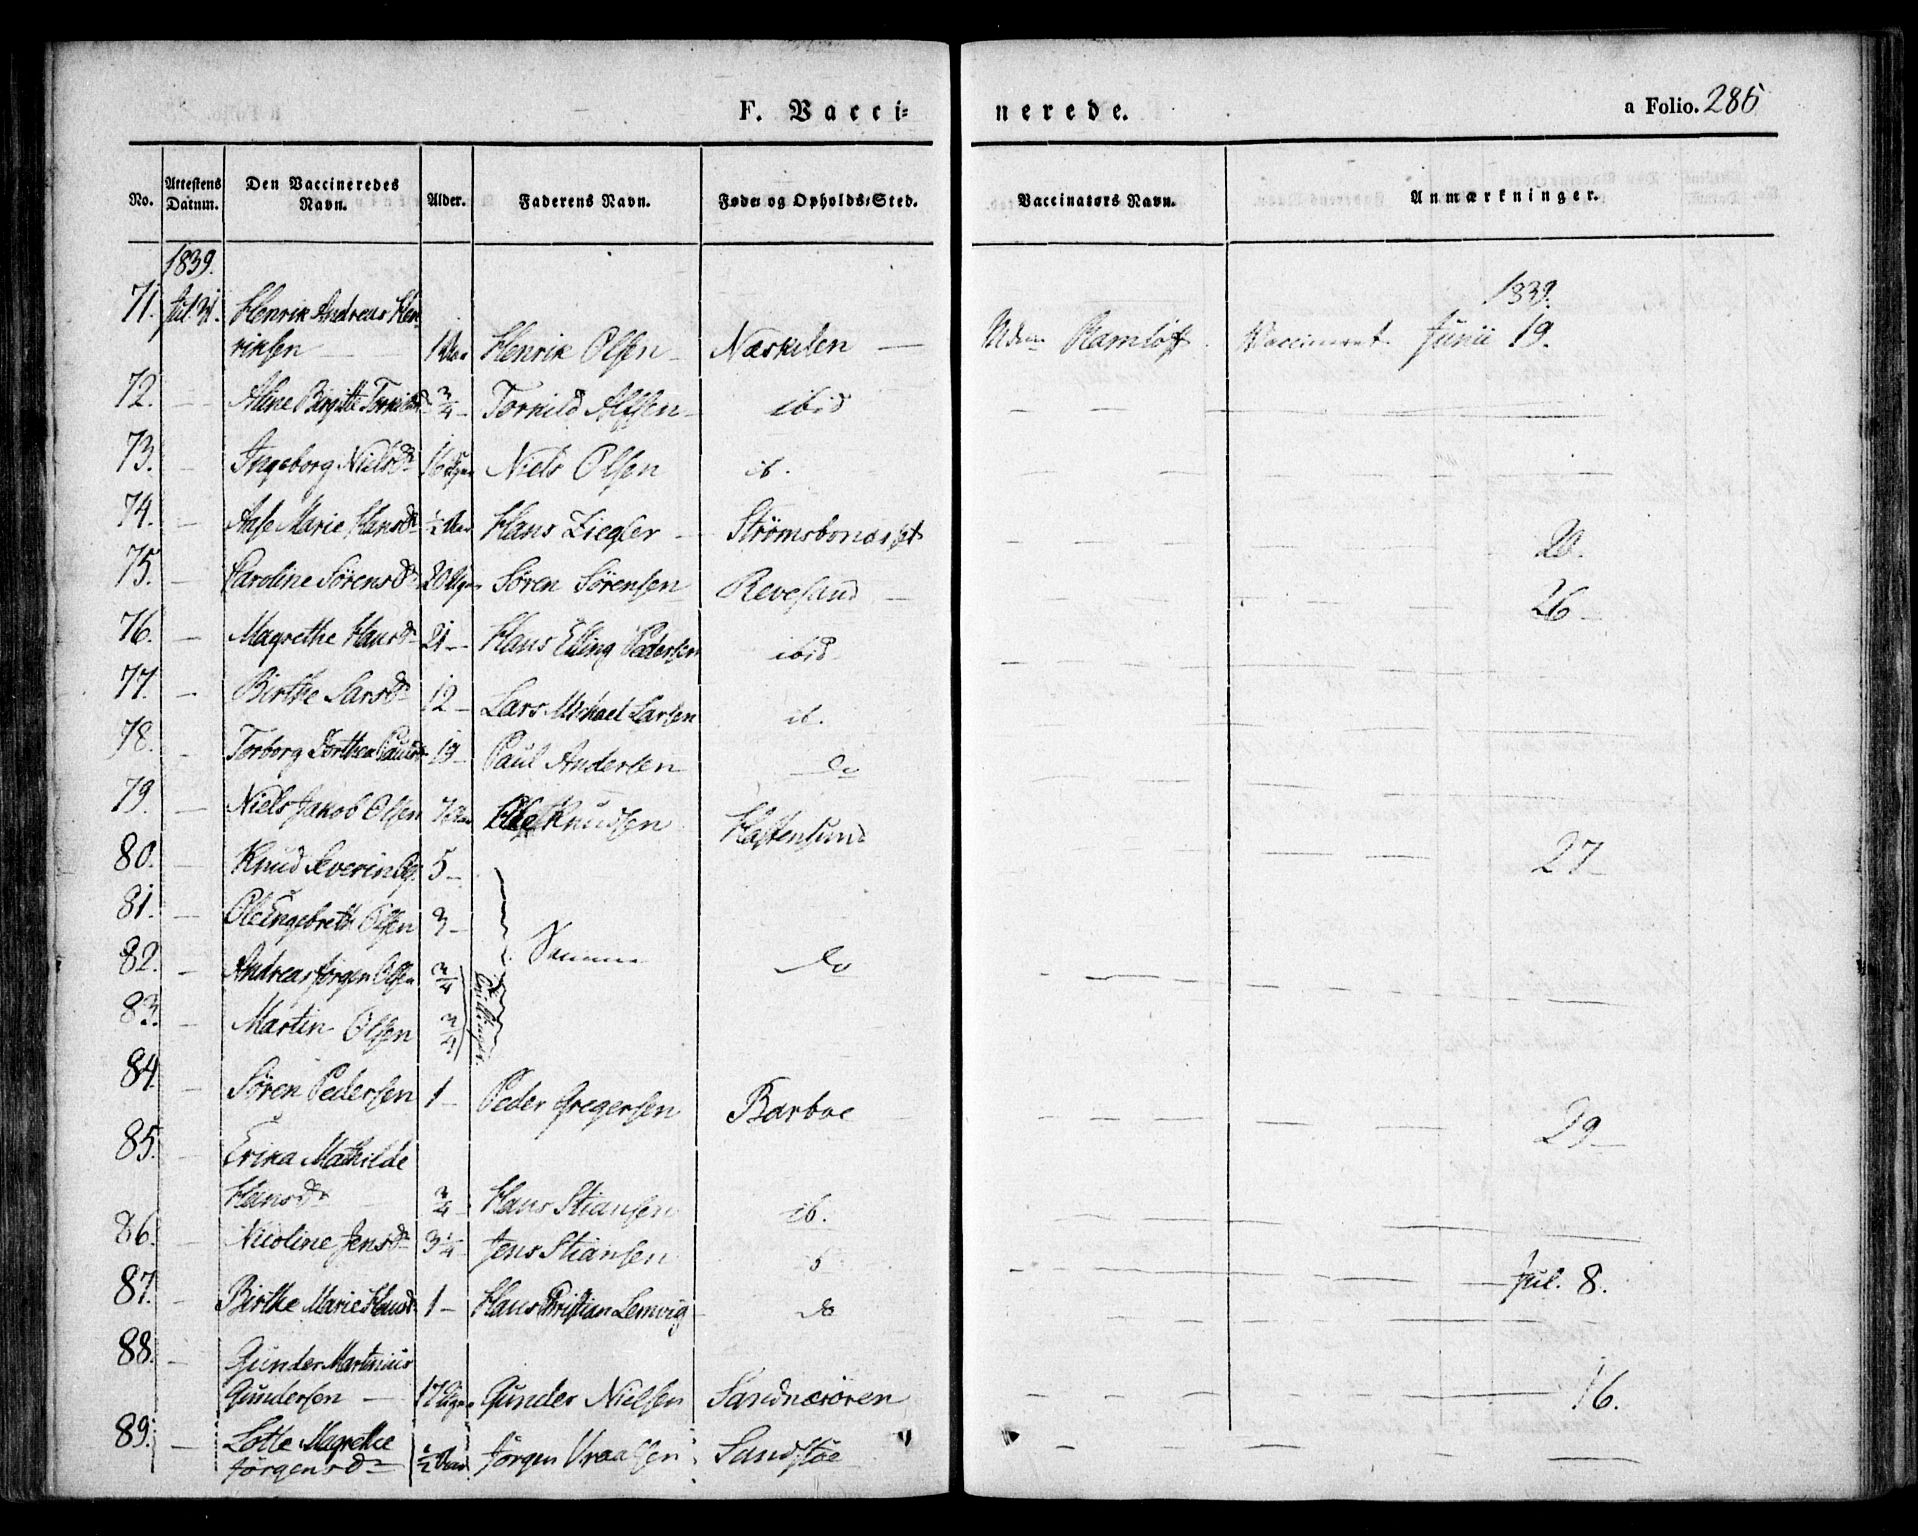 F. Vacci⸗ nerede. a Folio. 285
No. Attestens Datum. Den Vaccineredes Navn. Alder. Faderens Navn. Føde⸗ og Opholds⸗Sted. Vaccinators Navn. Anmærkninger.
1839. 1839.
71. Jul. 31. Henrik Andreas Hen
riksen — Henrik Olsen Næskilen — Ramløff Vaccineret Junii 19.
72. — Birgitte 3/4 — Torkild Alfsen ibid — — — —
73. — Ingeborg Nielsdr 16 Niels Olsen ib. — — — —
74. — Aase Marie Hansdr 1/2 Aar Hans Ziegler — — — — 20.
75. — Caroline Sørensdr 20 Søren Sørensen Revesand — — — — 26 —
76. — Magrethe Hansdr 21 — Hans Elling Pedersen ibid — — — —
77. — Birthe Larsdr 12 — Lars Michael Larsen ib. — — — —
78. — Torborg 19 — Paul Andersen do — — — —
79. — Niels Jakob Olsen 7 Ole Knudsen Hastensund
80. — Knud Severin 5 — 27 —
81. — Ole Engebreth Olsen 3 —
82. — Andreas Jørgen Olsen 3/4 Tvillinger. Samme do — — — —
83. — Martin Olsen 3/4
84. — Søren Pedersen 1 — Peder Gregersen Barboe — — — — 29 —
85. — Erika Mathilde
Hansdr 3/4 — Hans Stiansen ib. — — — —
86. — Nicoline Jensdr 3 1/4 — Jens Stiansen — — — — Jul. 8.
87. — Birthe Marie Hansdr 1 — Hans Christian Lemvig do — — — —
88. — Gunder Martinius
Gundersen — 17 Gunder Nielsen Sandnæsøren — — — — 16.
89. — Lotte Magrethe
Jørgensdr 1/2 Aar Jørgen Vraalsen Sandstøe — — — —